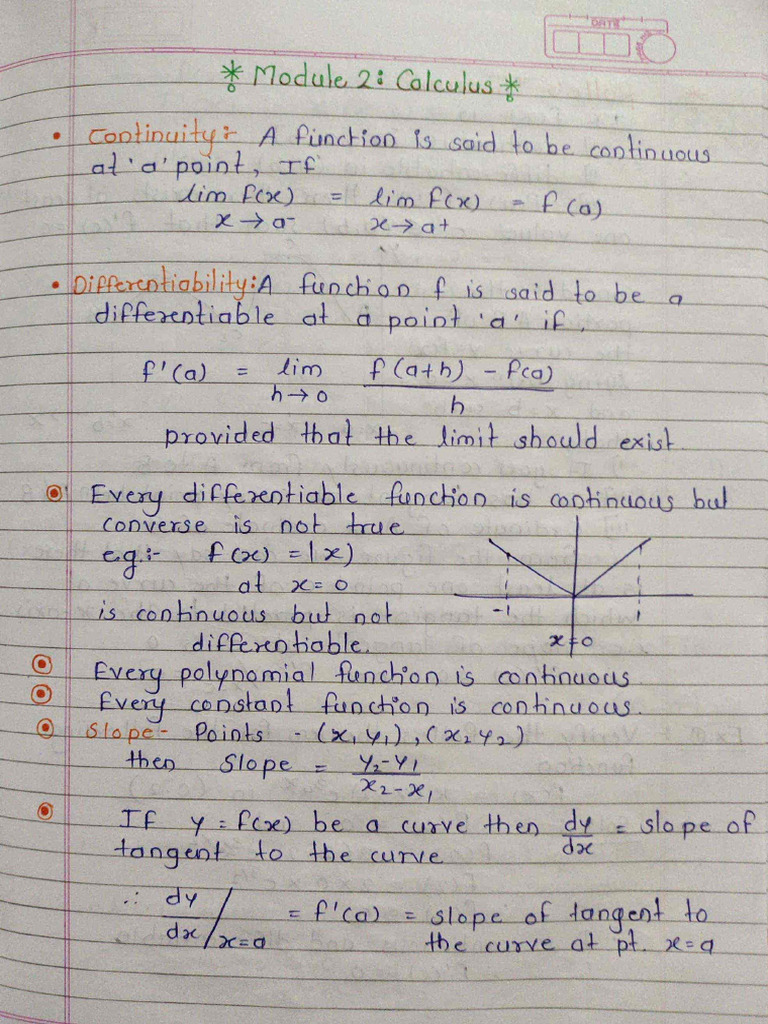 DATE
* Module 2: Calculus *
• Continuity:- A function is said to be continuous
at 'a' point, If
lim f(x) = lim f(x) = f(a)
x → a-    x → a+
• Differentiability: A function f is said to be a
differentiable at a point 'a' if,
f'(a) = lim f(a+h) - f(a)
h → 0    h
provided that the limit should exist.
Every differentiable function is continuous but
converse is not true
e.g:- f(x) = |x)
at x = 0
is continuous but not
-1
differentiable.
x=0
Every polynomial function is continuous
Every constant function is continuous.
Slope- Points - (x₁ y₁), (x₂ y₂)
then Slope = y₂-y₁
x₂-x₁
If y = f(x) be a curve then dy = slope of
dx
tangent to the curve
∴ dy/dx /x=a = f'(a) = slope of tangent to
the curve at pt. x=a